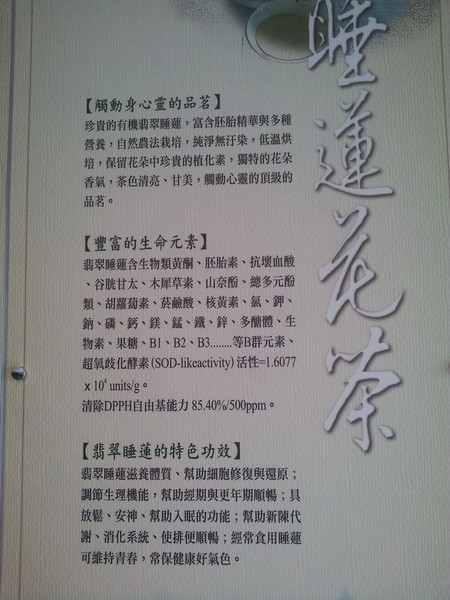 睡蓮花茶
【觸動身心靈的品茗】
珍貴的有機翡翠睡蓮，富含胚胎精華與多種
營養，自然農法栽培，純淨無汙染，低溫烘
培，保留花朵中珍貴的植化素，獨特的花朵
香氣，茶色清亮、甘美，觸動心靈的頂級的
品茗。
【豐富的生命元素】
翡翠睡蓮含生物類黃酮、胚胎素、抗壞血酸
、谷胱甘太、木犀草素、山奈酚、總多元酚
類、胡蘿蔔素、菸鹼酸、核黃素、氯、鉀、
鈉、磷、鈣、鎂、錳、鐵、鋅、多醣體、生
物素、果糖、B1、B2、B3........等B群元素、
超氧歧化酵素(SOD-likeactivity)活性=1.6077
x 10⁴ units/g。
清除DPPH自由基能力 85.40%/500ppm。
【翡翠睡蓮的特色功效】
翡翠睡蓮滋養體質、幫助細胞修復與還原；
調節生理機能，幫助經期與更年期順暢；具
放鬆、安神、幫助入眠的功能；幫助新陳代
謝、消化系統、使排便順暢；經常食用睡蓮
可維持青春，常保健康好氣色。